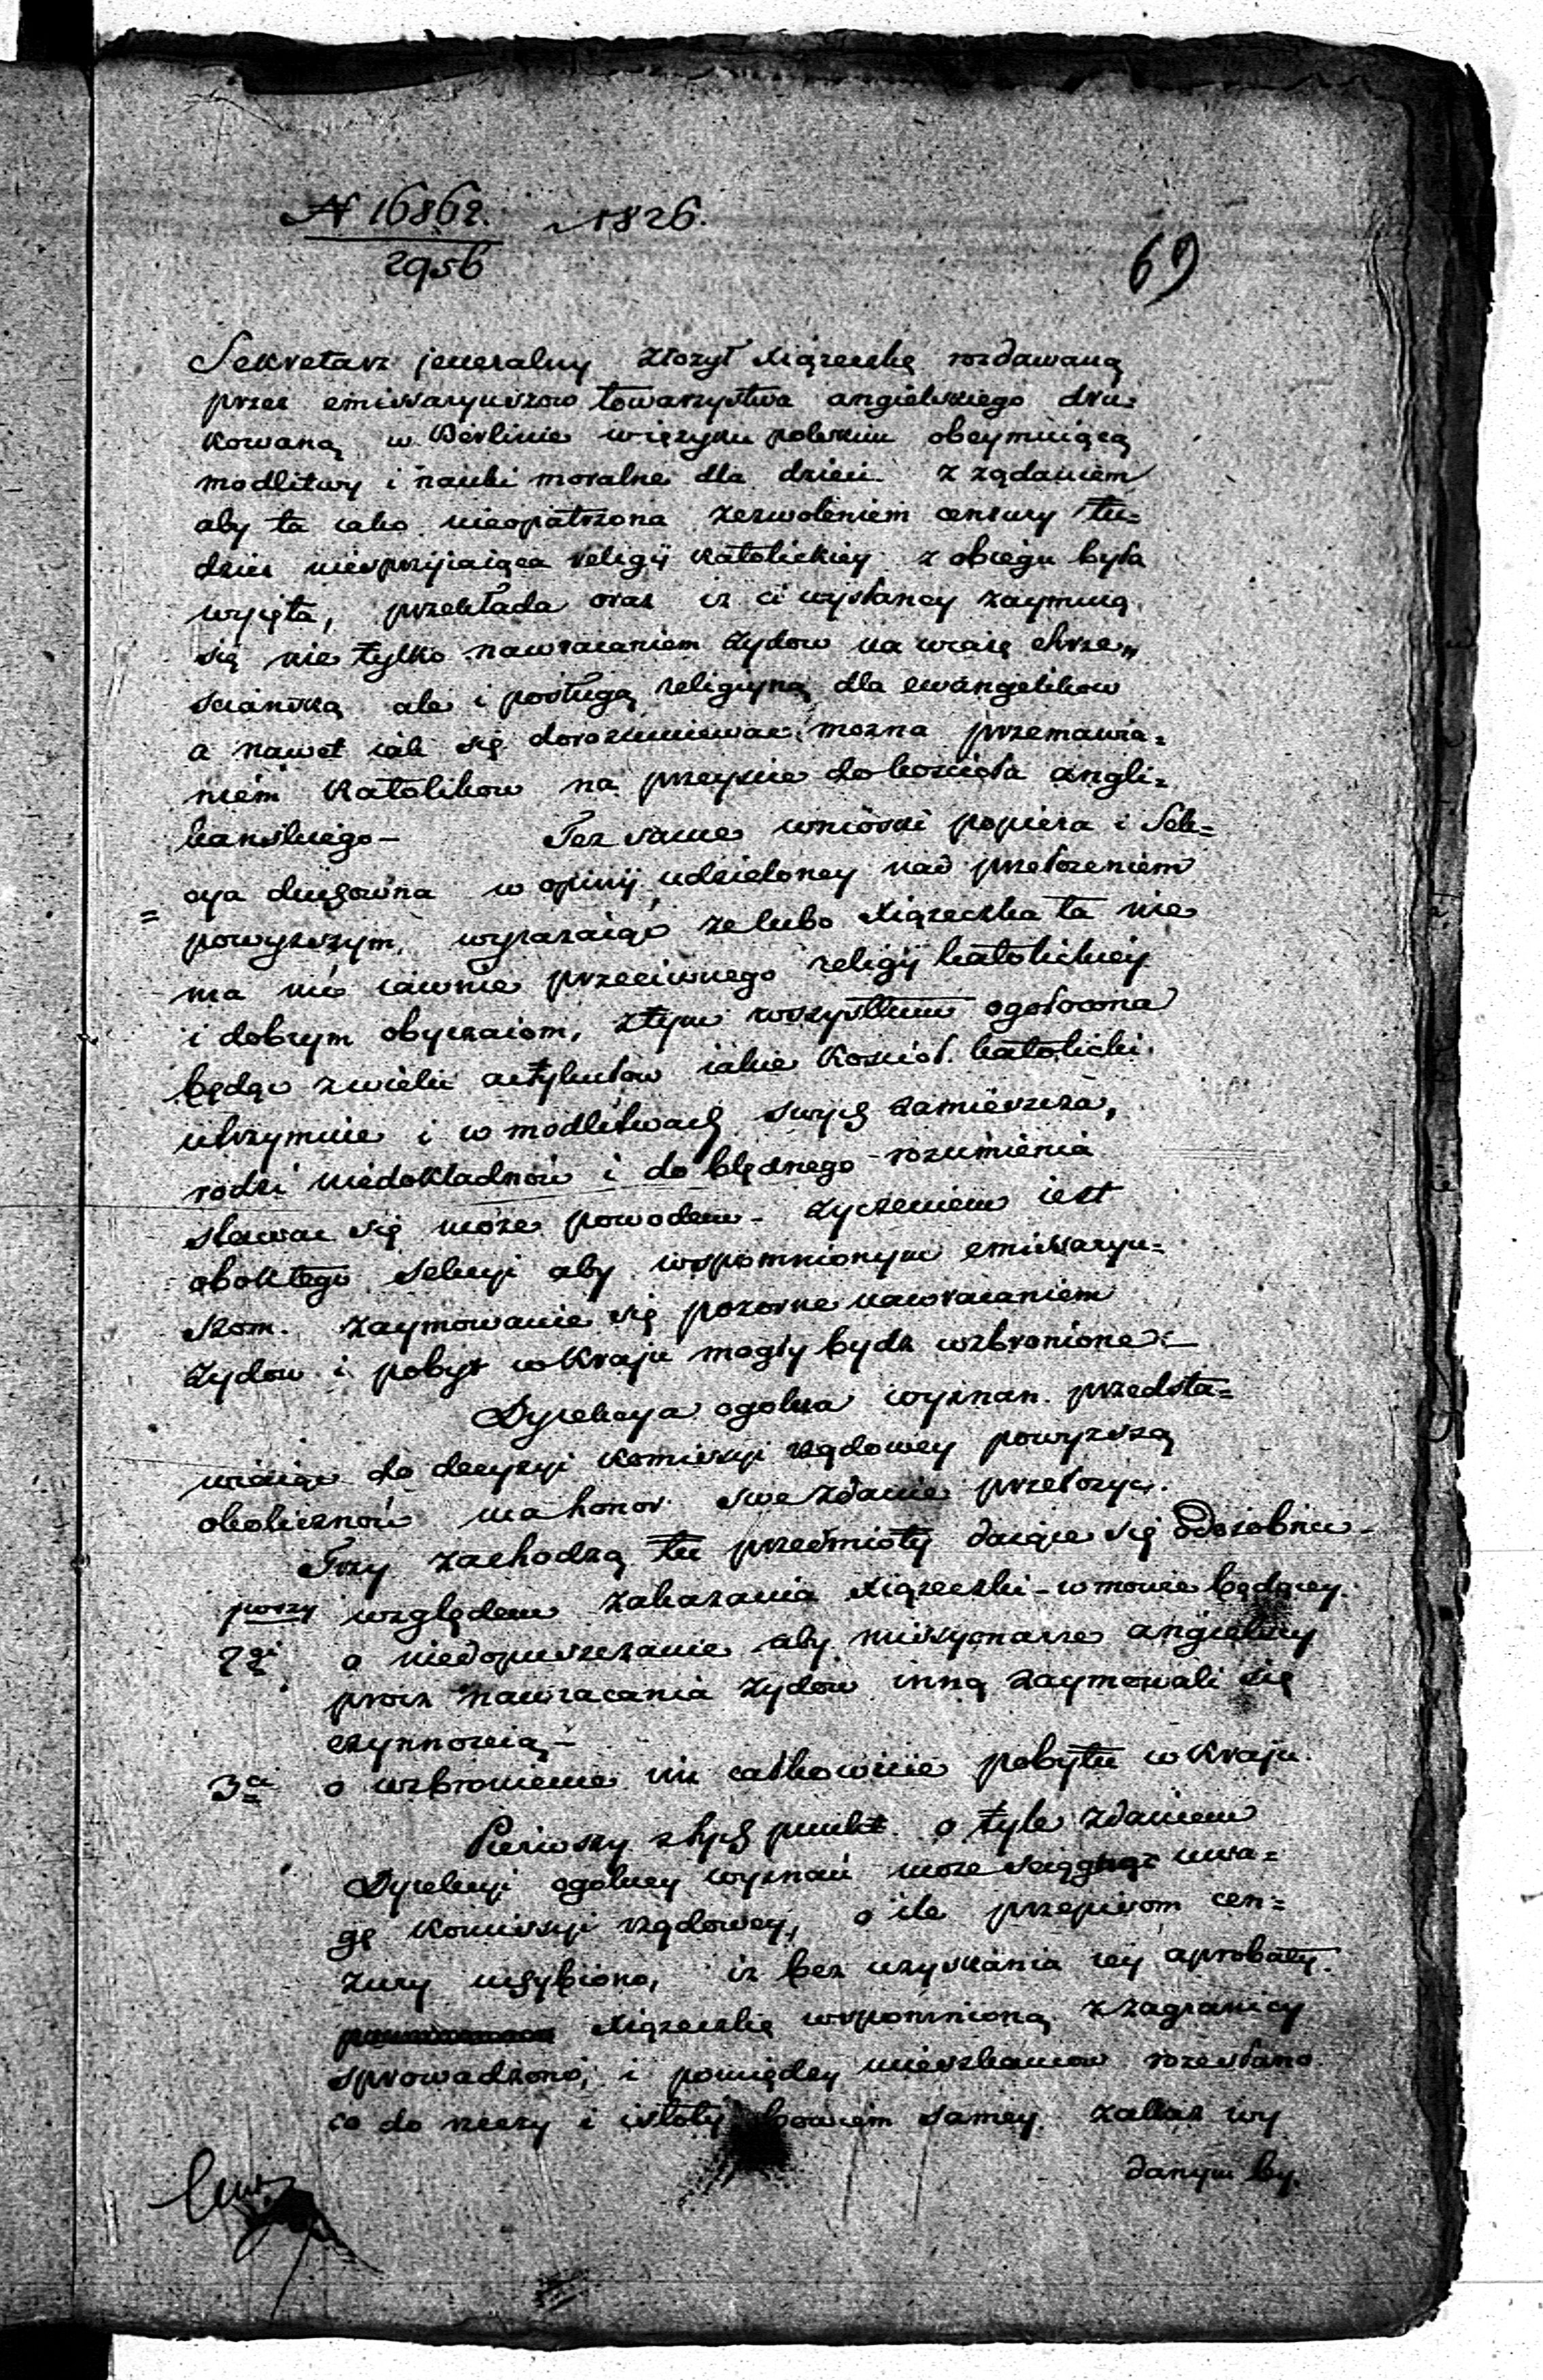 N 16862. 1826.
2956
69
Sekretarz jeneralny złożył xiążeczkę rozdawaną
przez emissaryuszow towarzystwa angielskiego dru=
kowaną w Berlinie w ięzyku polskim obeymuiącą
modlitwy i nauki moralne dla dzieci z żądaniem
aby ta iako nieopatrzona zezwoleniem censury tu=
dzież niesprzyiaiąca religii katolickiey z obiegu była
wyięta, przekłada oraz iż ci wysłancy zaymuią
się nie tylko nawracaniem żydow na wiarę chrze„
sciańską ale i posługą religiyną dla ewangelikow
a nawet iak się dorozumiewać można przemawia=
niem katolikow na przeyście do kościoła angli=
kańskiego – Też same wnioski popiera i Sek=
cya duchowna w opinii udzieloney nad przełożeniem
powyższym, wyrażaiąc że lubo xiążeczka ta nie
ma nic iawnie przeciwnego religii katolickiey
i dobrym obyczaiom, z tym wszystkim ogołocona
będąc z wielu artykułow iakie Kościoł katolicki
utrzymuie i w modlitwach swych zamieszcza,
rodzi niedokładność i do błędnego rozumienia
stawać się może powodem – życzeniem iest
obok tego Sekcyi aby wspomnionym emissaryu=
szom zaymowanie się pozorne nawracaniem
żydow i pobyt w kraju mogły bydź wzbronione –
Dyrekcya ogolna wyznan przedsta=
wiaiąc do decyzyi Komissyi rządowey powyższą
okoliczność ma honor swe zdanie przełożyć.
Trzy zachodzą tu przedmioty daiące się odosobnić –
pszy względem zakazania xiążeczki – w mowie będącey.
2gi o niedopuszczanie aby missyonarze angielscy
procz nawracania żydow inną zaymowali się
czynnością –
3ci o wzbronienie im całkowicie pobytu w kraju.
Pierwszy z tych punkt o tyle zdaniem
Dyrekcyi ogolney wyznań może ściągnąć uwa=
gę Komissyi rządowey, o ile przepisom cen=
zury uchybiono, iż bez uzyskania iey aprobaty
xiążeczkę wspomnioną z zagranicy
sprowadzono, i pomiędzy mieszkancow rozesłano
co do rzeczy i istoty bowiem samey zakaz wy
danym by